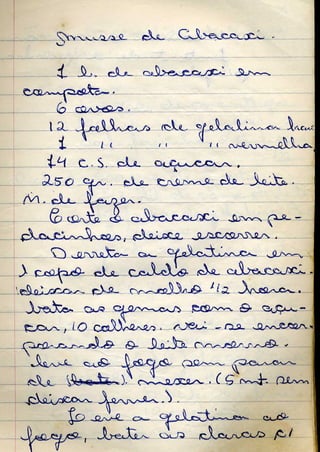 Smusse de Abacaxi.
1 l. de abacaxi em
compota.
6 ovos.
12 folhas de gelatina bran
1 " " " vermelha
14 c.s. de açucar.
250 gr. de creme de leite.
M. de fazer.
Corte o abacaxi em pe-
dacinhos, deixe escorrer.
Derreta a gelatina em
1 copo de caldo de abacaxi.
deixar de molho 1/2 hora.
bata as gemas com o açu-
car, 10 colheres. vai-se encor-
porando o leite morno.
leve ao fogo sem parar
de (bater) mexer. (5 mt sem
deixar ferver.)
Leve a gelatina ao
fogo, bater as claras c/